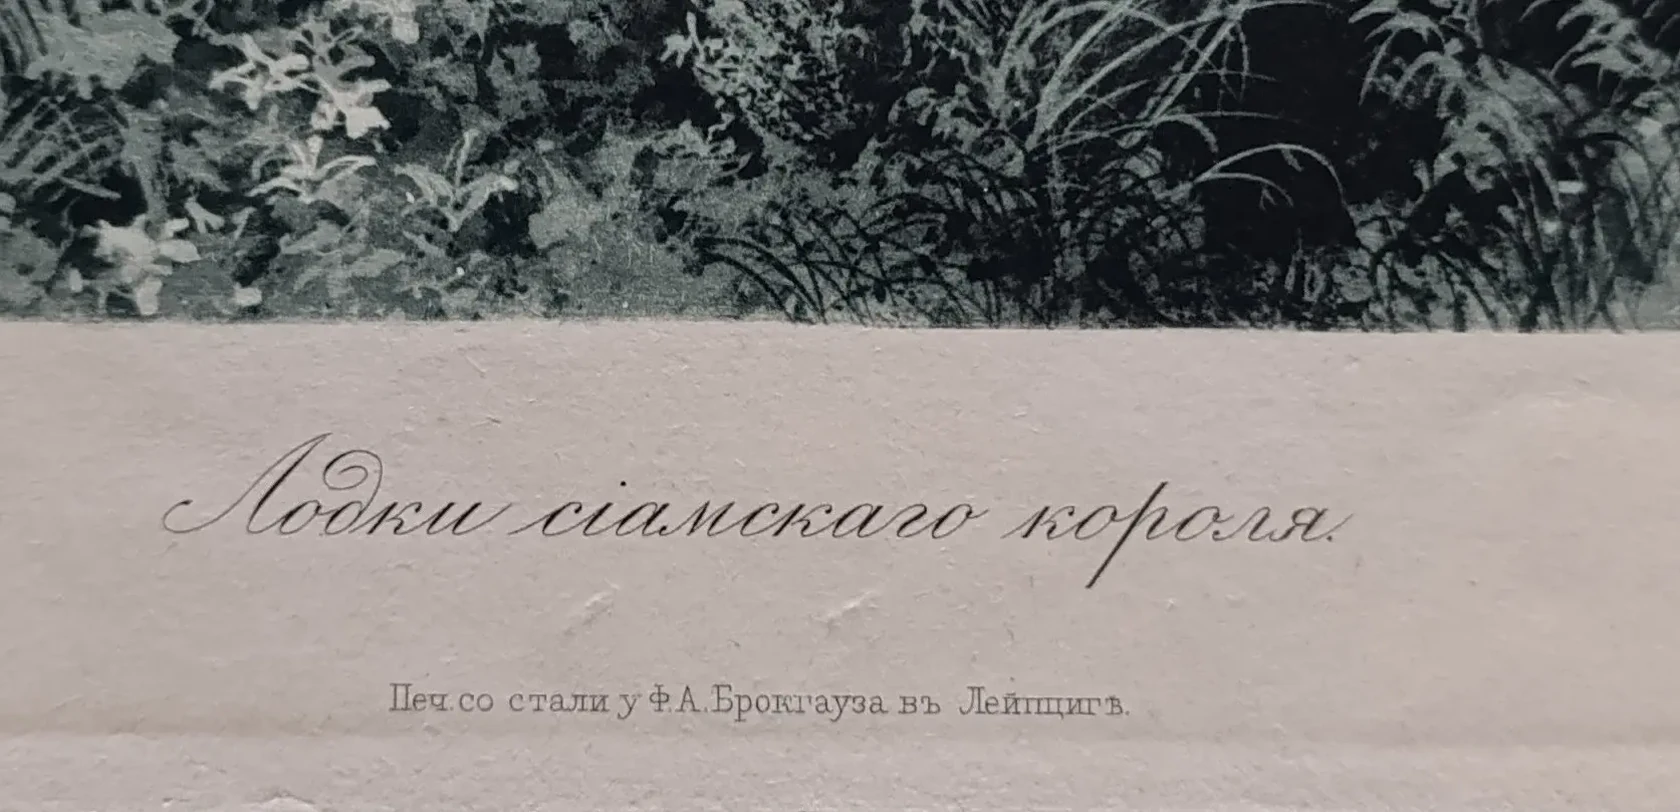 Лодки сіамскаго короля.
Печ. со стали у Ф.А.Брокгауза въ Лейпцигѣ.